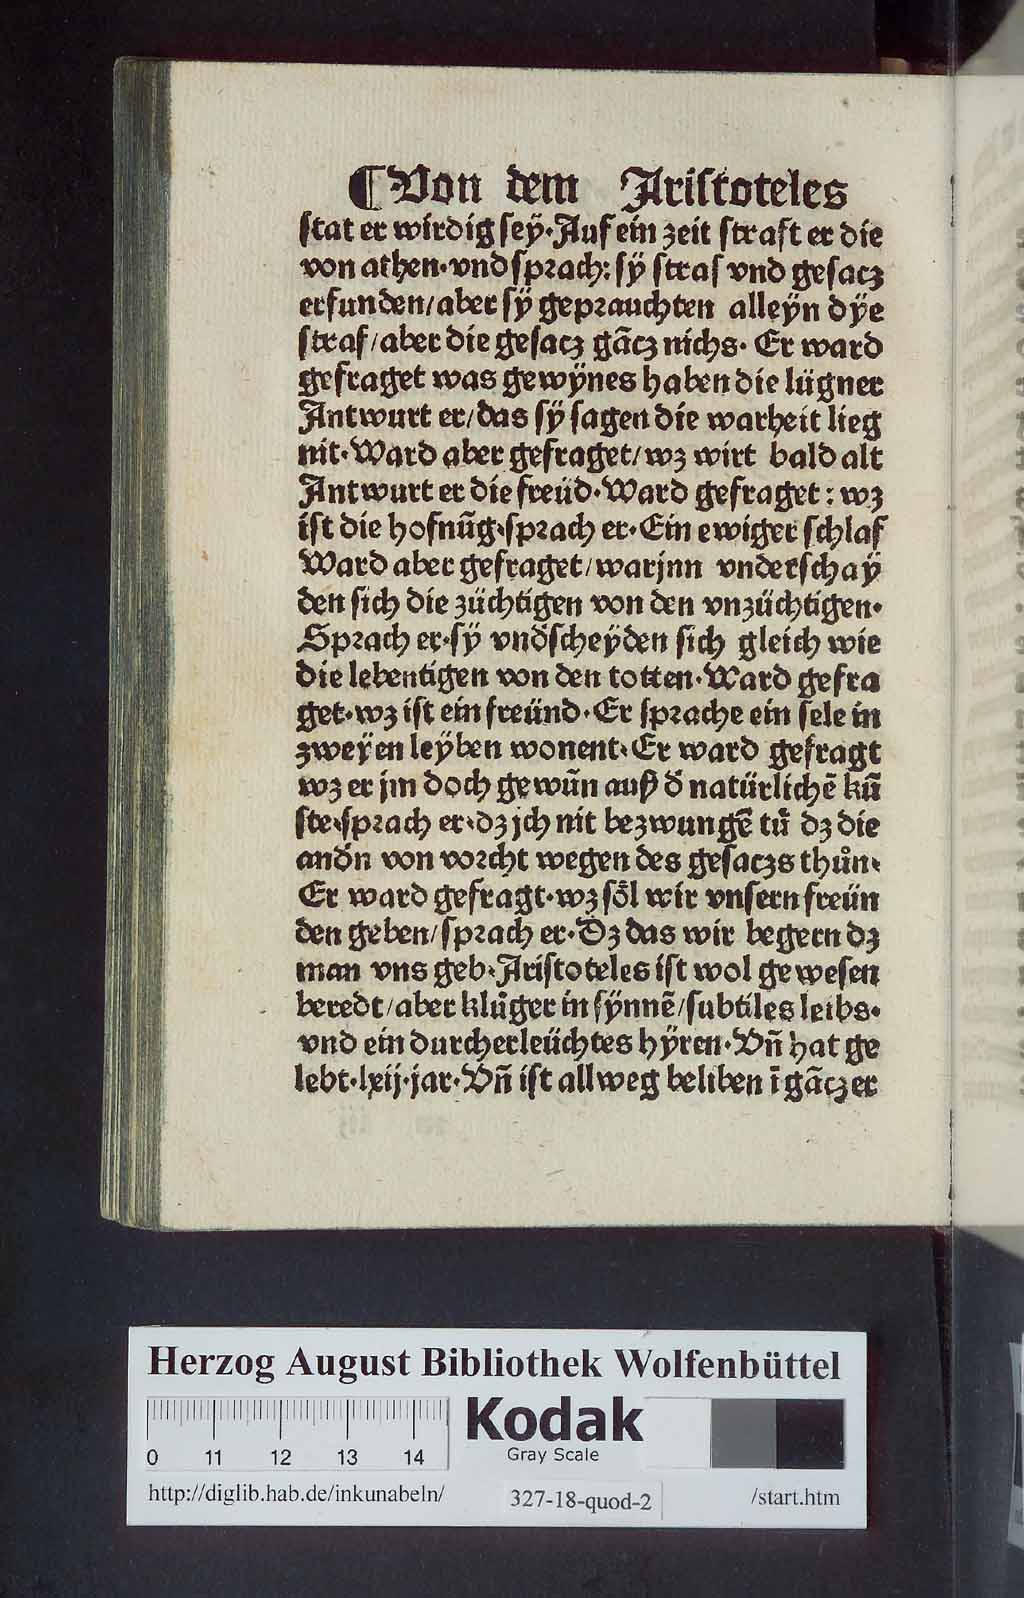 ¶Von dem Aristoteles
stat er wirdig sey̎·Auf ein zeit straft er die
von athen·vnd sprach: sÿ straf vnd gesacz
erfunden/aber sÿ geprauchten alleÿn dÿe
straf/aber die gesacz gãcz nichs· Er ward
gefraget was gewÿnes haben die lügner
Antwurt er/das sÿ sagen die warheit lieg
nit·Ward aber gefraget/wz wirt bald alt
Antwurt er die freüd·Ward gefraget: wz
ist die hofnũg·sprach er·Ein ewiger schlaf
Ward aber gefraget/warjnn vnderschaÿ
den sich die züchtigen von den vnzüchtigen·
Sprach er·sÿ vnd̕scheÿden sich gleich wie
die lebentigen von den totten·Ward gefra
get·wz ist ein freünd·Er sprache ein sele in
zweÿen leÿben wonent·Er ward gefragt
wz er jm doch gewũn auß d̕ natürlichẽ kũ
ste·sprach er·dz jch nit bezwungẽ tů dz die
and̕n von vorcht wegen des gesaczs thůn·
Er ward gefragt·wz söl wir vnsern freün
den geben/sprach er·Dz das wir begern dz
man vns geb·Aristoteles ist wol gewesen
beredt/aber klůger in sÿnnẽ/subtiles leibs·
vnd ein durcherleüchtes hÿren·Vñ hat ge
lebt·lxij·jar·Vñ ist allweg beliben ĩ gãczer
Herzog August Bibliothek Wolfenbüttel
Kodak
Gray Scale
0 11 12 13 14
http://diglib.hab.de/inkunabeln/ 327-18-quod-2 /start.htm